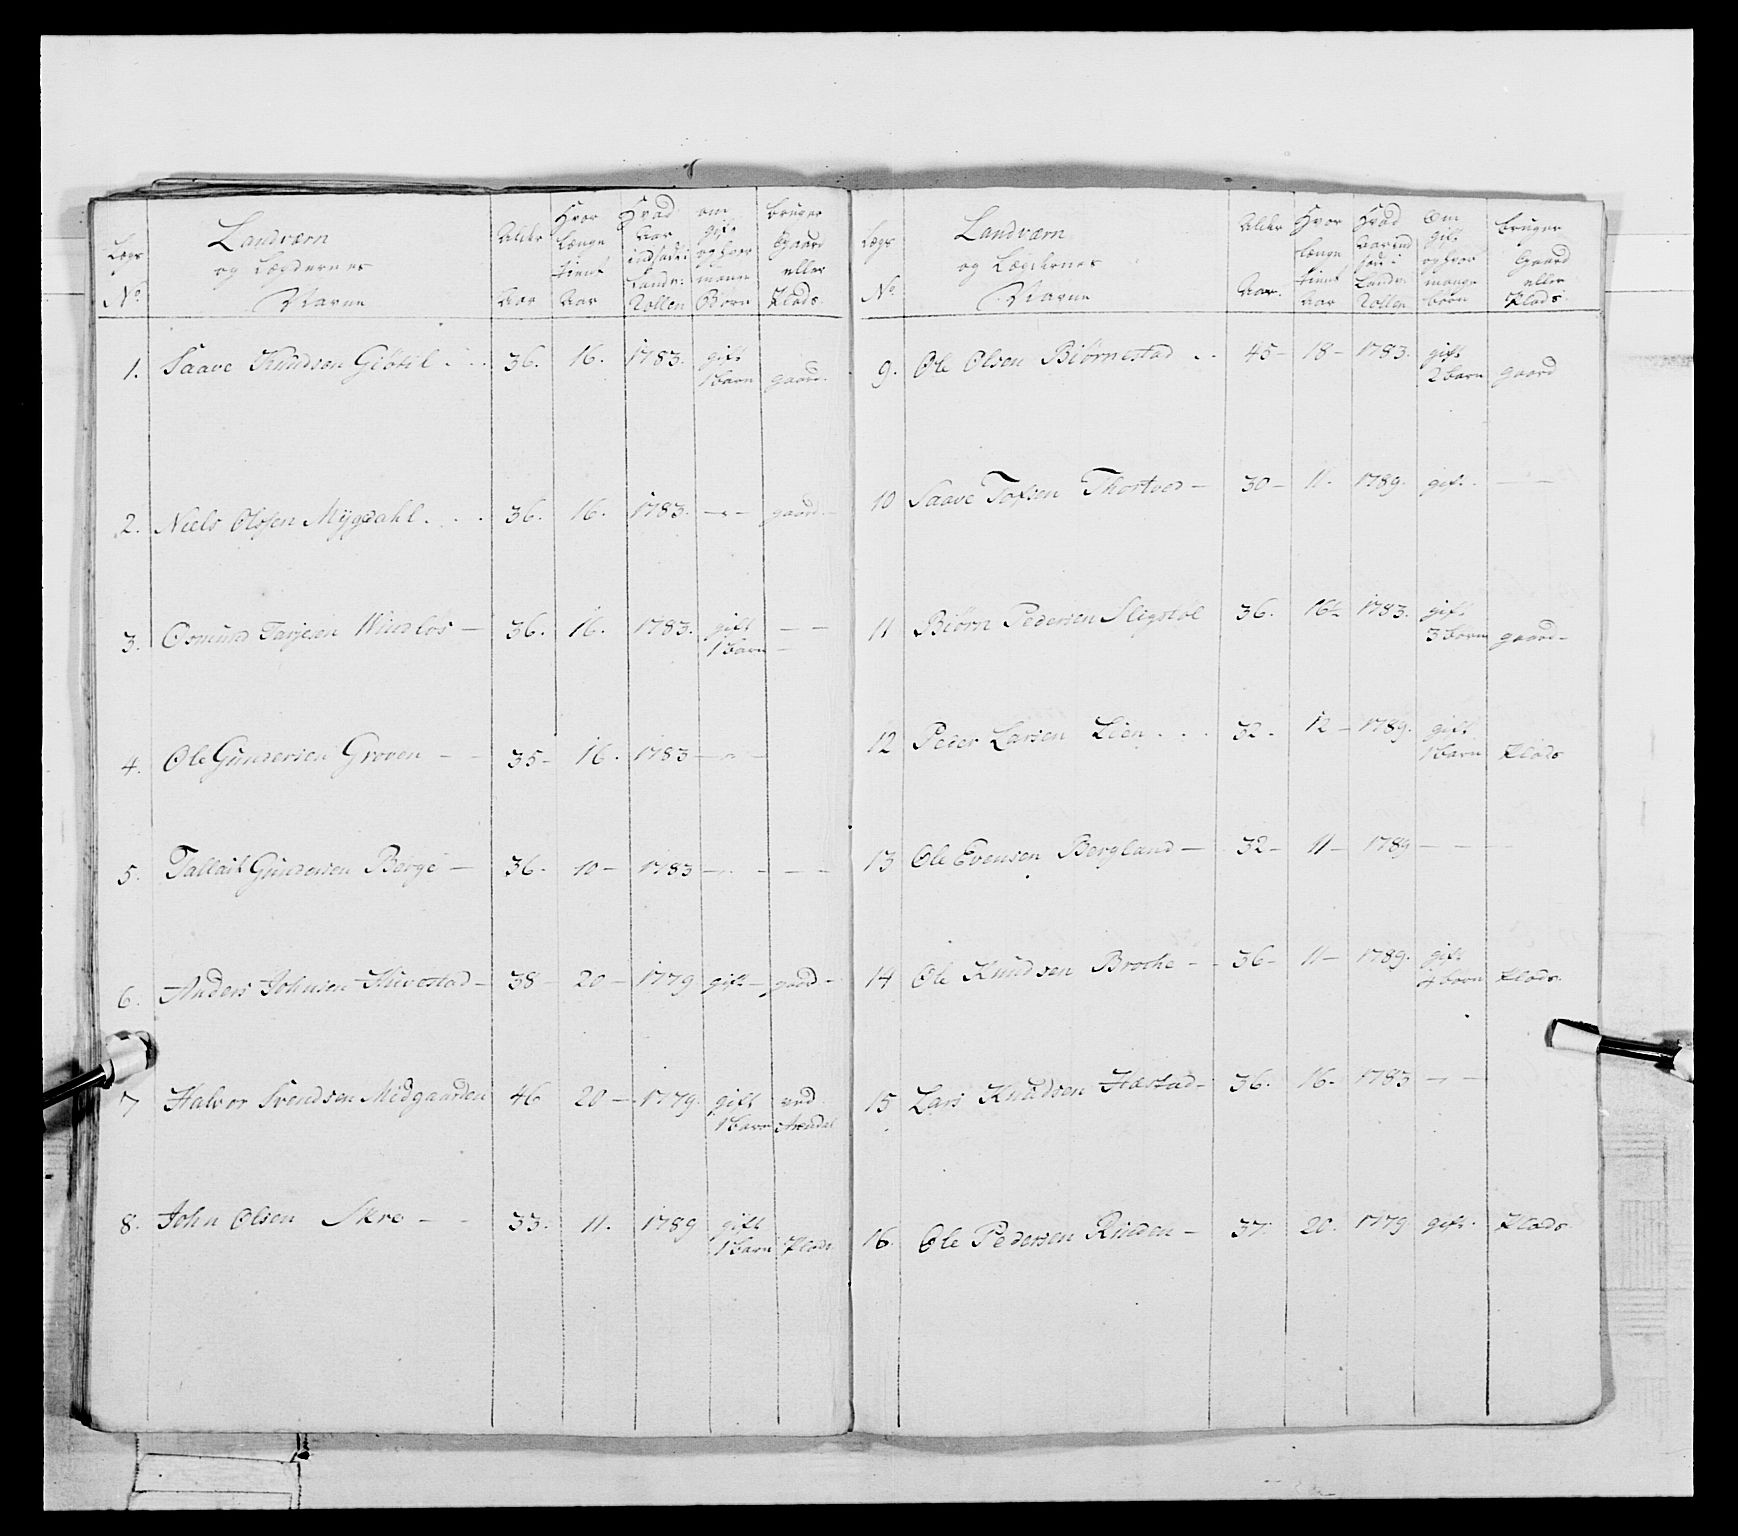 Lægs No
Landværn og Lægdernes Navne
Alder Aar
Hvor længe tient Aar
Hvad Aar indsadt i Landv: Rollen
om gift og hvor mange Børn
bruger Gaard eller Plads.
1. Saave Knudsen 36. 16. 1783. gift 1 barn gaard.
2. Niels Olssen Mygdahl 36. 16. 1783. — gaard —
3. Osmund Tarjesen Windlös — 36. 16. 1783. gift 1 barn — —
4. Ole Gundersen Groven — 35 — 16. 1783 —
5. Gundersen Berge — 36 — 10 — 1783 — — —
6. Anders Johnsen — 38 — 20 — 1779 gift — gaard —
7 Halvor Svendsen Midgaarden 46 20 — 1779. gift 1 barn ved Arendal
8. John Olsen Skre — — 33. 11. 1789 gift 1 barn Plads
Lægs No
Landværn og Lægdernes Navne
Alder Aar.
Hvor længe tient Aar
Hvad Aar ind sadt i Landv: Rollen
Om gift og hvor mange børn
bruger Gaard eller Plads.
9. Ole Olsen Biørnestad 45 — 18 — 1783. gift 2 barn gaard
10 Saave Thortved — 30 — 11. 1789. gift. — —
11 Biørn Pedersen Sligstøl 36. 16 — 1783. gift 3 børn gaard —
12 Peder Larsen Lien 32. 12 — 1789. gift 1 barn Plads
13 Ole Evensen Bergland — 32 — 11 — 1789 — — —
14 Ole Knudsen Broche — 36 — 11 — 1789. gift børn Plads.
15 Lars Knudsen Hæstad — 36. 16 — 1783 — —
16. Ole Pedersen Rinden — 37. 20. 1779. gift. Plads